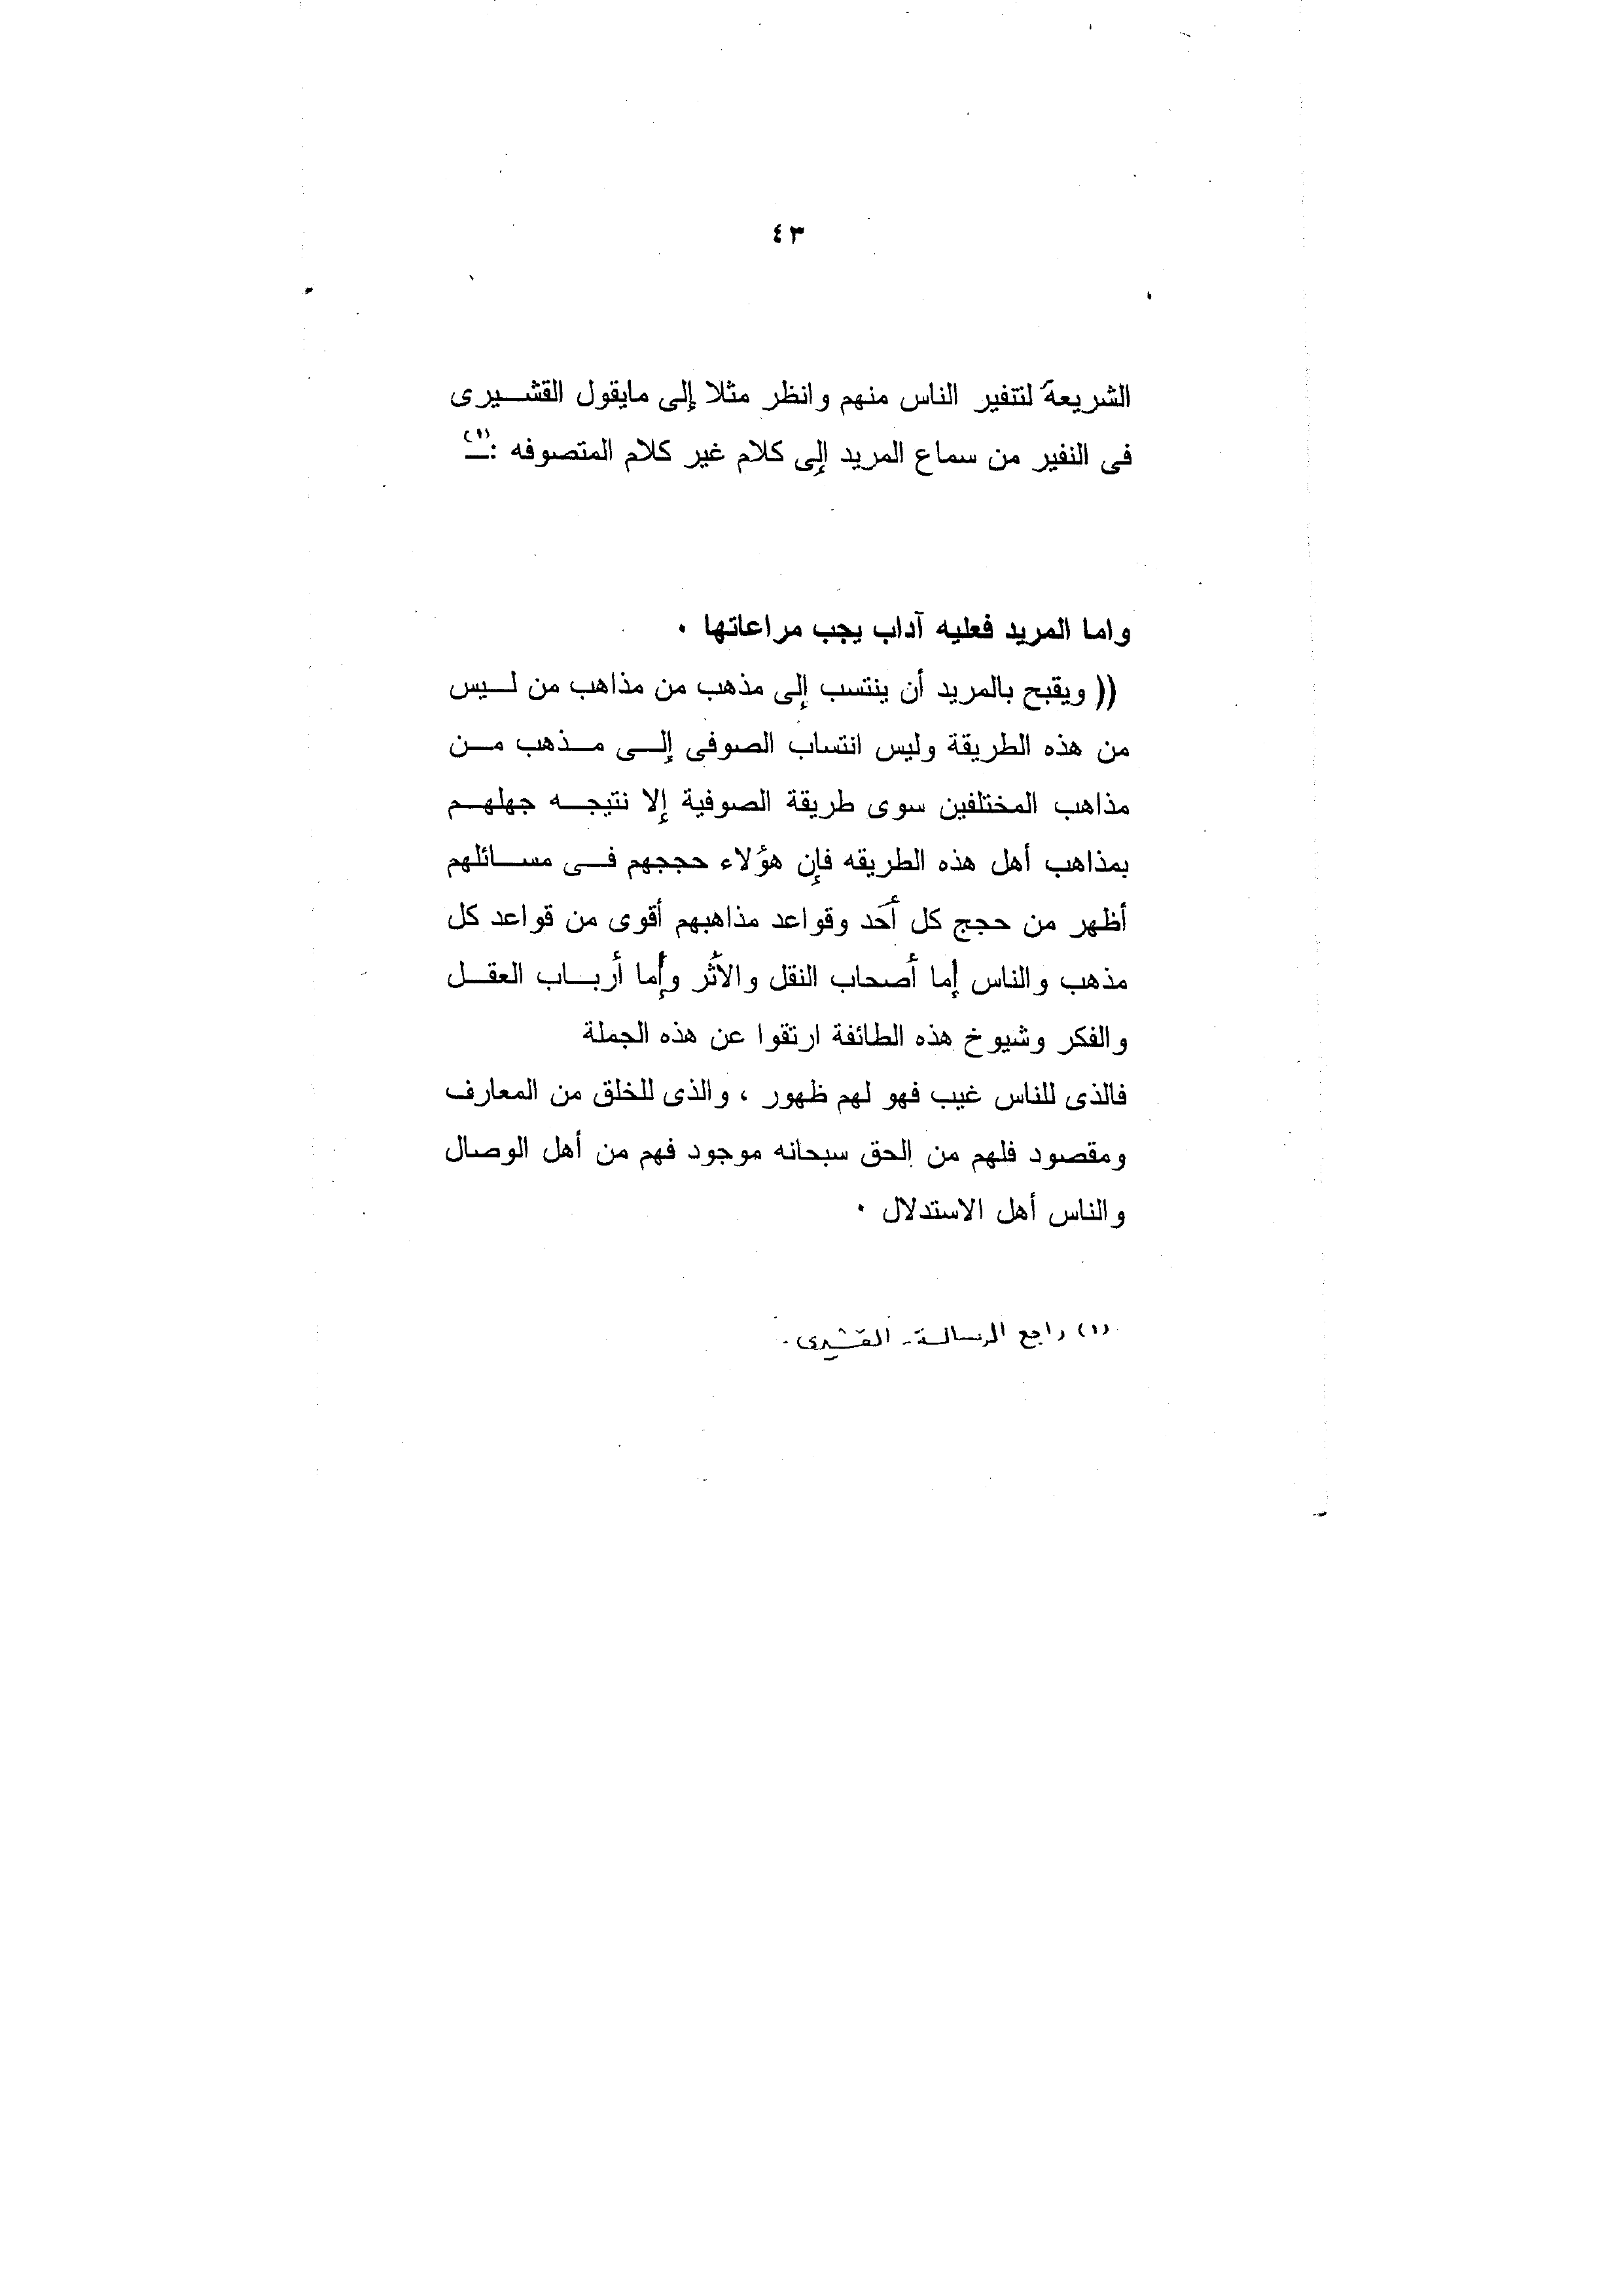 ٤٣
الشريعة لتنفير الناس منهم وانظر مثلا إلى مايقول القشيرى
فى النفير من سماع المريد إلى كلام غير كلام المتصوفه :ـ (١)
واما المريد فعليه آداب يجب مراعاتها ٠
(( ويقبح بالمريد أن ينتسب إلى مذهب من مذاهب من ليس
من هذه الطريقة وليس انتساب الصوفى إلى مذهب من
مذاهب المختلفين سوى طريقة الصوفية إلا نتيجه جهلهم
بمذاهب أهل هذه الطريقه فإن هؤلاء حججهم فى مسائلهم
أظهر من حجج كل أحد وقواعد مذاهبهم أقوى من قواعد كل
مذهب والناس إما أصحاب النقل والأثر وإما أرباب العقل
والفكر وشيوخ هذه الطائفة ارتقوا عن هذه الجملة
فالذى للناس غيب فهو لهم ظهور ، والذى للخلق من المعارف
ومقصود فلهم من الحق سبحانه موجود فهم من أهل الوصال
والناس أهل الاستدلال ٠
(١) راجع الرسالة - القشيرى .